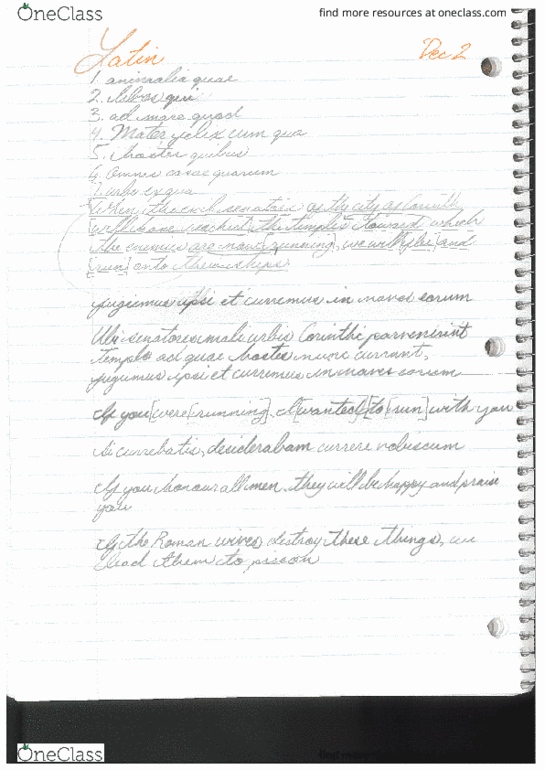 OneClass
find more resources at oneclass.com
Latin
Dec 2
1. animalia quae
2. libros qui
3. ad mare quod
4. Mater felix cum qua
5. hostes quibus
6. omnes casae quarum
7. urbs ex qua
When the evil senators of the city of Corinth
will have reached the temples toward which
the enemies are now running, we will flee and
run onto their ships
fugiemus ipsi et curremus in naves eorum
Ubi senatores mali urbis Corinthi pervenerint
templa ad quae hostes nunc currunt,
fugiemus ipsi et curremus in naves eorum
If you [were [running], I [wanted] [to [run] with you
Si currebatis, desiderabam currere vobiscum
If you honour all men, they will be happy and praise
you
If the Roman wives destroy these things, we
lead them to prison
OneClass